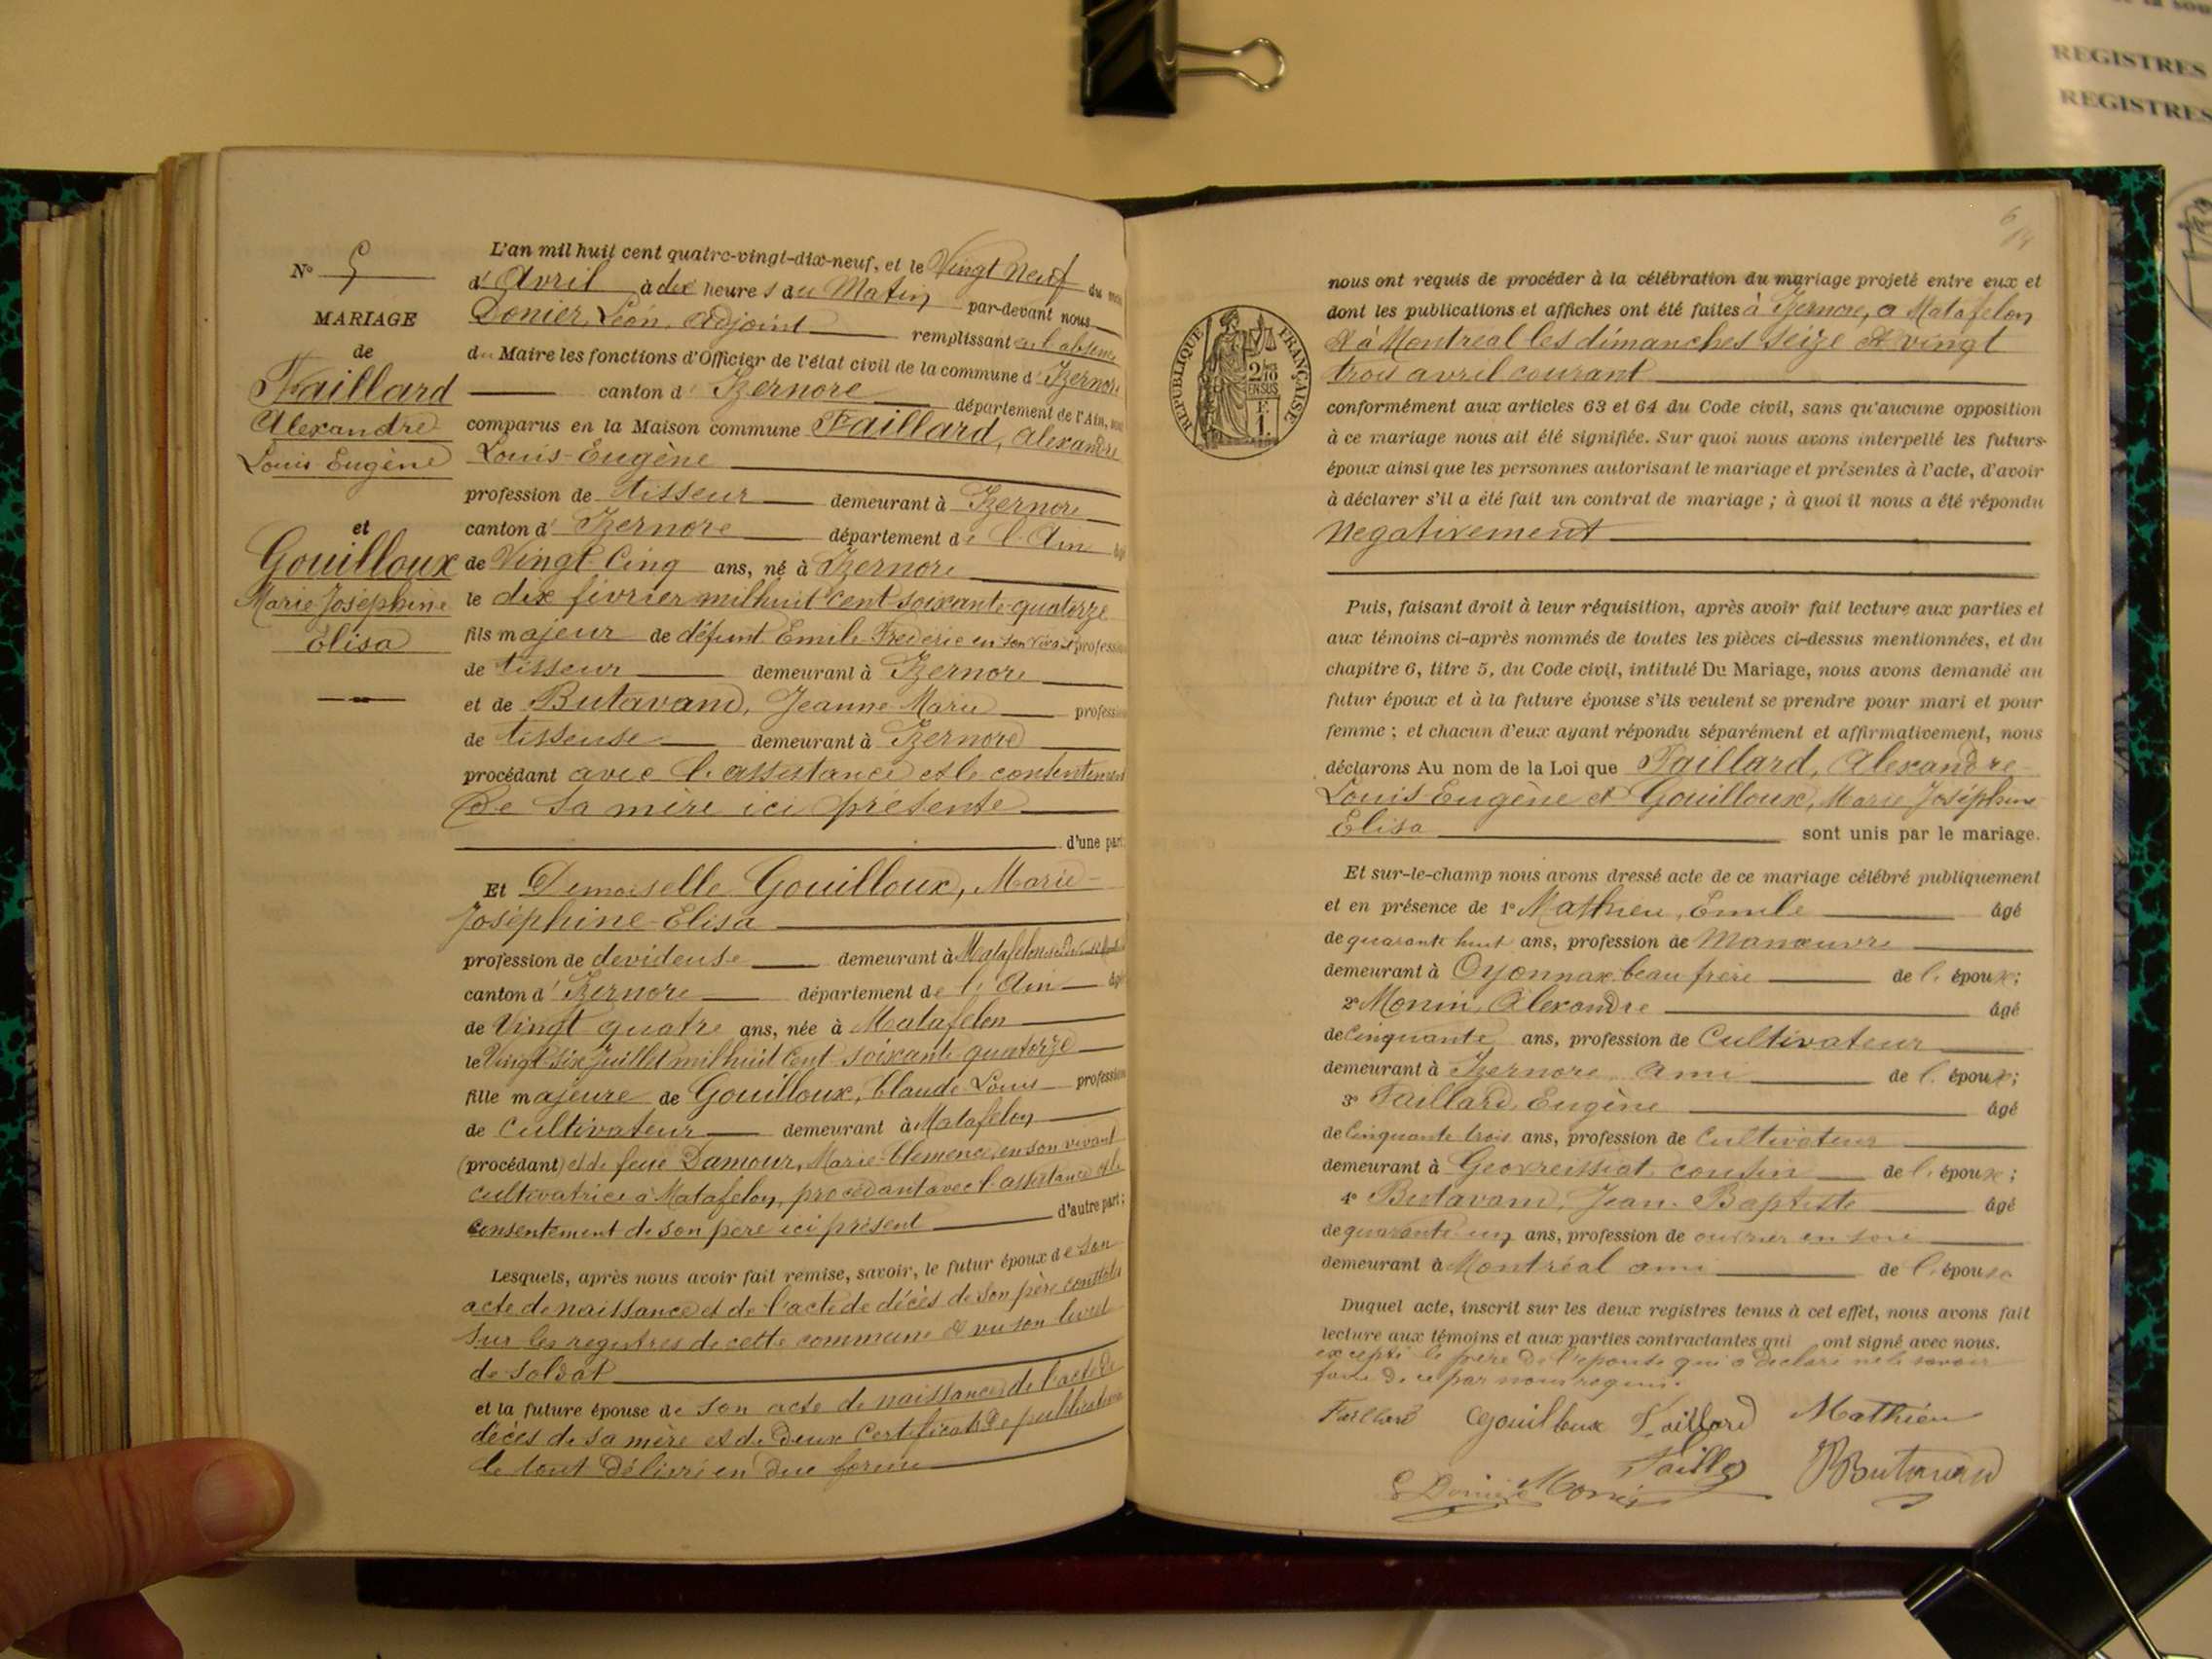 N° 5
MARIAGE
de
Faillard
Alexandre
Louis Eugène
et
Gouilloux
Marie Joséphine
Elisa
L'an mil huit cent quatre-vingt-dix-neuf, et le Vingt Neuf du mois
d'Avril à dix heures du Matin par-devant nous
Donier, Léon, adjoint remplissant en l'absence
du Maire les fonctions d'Officier de l'état civil de la commune d'Izernore
canton d'Izernore département de l'Ain, sont
comparus en la Maison commune Faillard, Alexandre
Louis-Eugène
profession de tisseur demeurant à Izernore
canton d'Izernore département de l'Ain âgé
de Vingt Cinq ans, né à Izernore
le dix février mil huit cent soixante quatorze
fils majeur de défunt Emile Frederic en son vivant profession
de tisseur demeurant à Izernore
et de Butavand, Jeanne Marie profession
de tisseuse demeurant à Izernore
procédant avec l'assistance et le consentement
de sa mère ici présente
d'une part
Et Demoiselle Gouilloux, Marie-
Joséphine-Elisa
profession de devideuse demeurant à Matafelon
canton d'Izernore département de l'Ain âgée
de Vingt quatre ans, née à Matafelon
le Vingt six Juillet mil huit Cent soixante quatorze
fille majeure de Gouilloux, Claude Louis profession
de Cultivateur demeurant à Matafelon
(procédant) et de feue Damour, Marie-Clemence, en son vivant
cultivatrice à Matafelon, procédant avec l'assistance et le
consentement de son père ici présent d'autre part;
Lesquels, après nous avoir fait remise, savoir, le futur époux de son
acte de naissance et de l'acte de décès de son père constatés
sur les registres de cette commune et vu son livret
de soldat
et la future épouse de son acte de naissance de l'acte de
décès de sa mère et de deux Certificats de publication
le tout délivré en due forme
nous ont requis de procéder à la célébration du mariage projeté entre eux et
dont les publications et affiches ont été faites à Izernore, a Matafelon
et à Montréal les dimanches seize et vingt
trois avril courant
REPUBLIQUE FRANÇAISE
2/10
EN SUS
F.
1.
conformément aux articles 63 et 64 du Code civil, sans qu'aucune opposition
à ce mariage nous ait été signifiée. Sur quoi nous avons interpellé les futurs-
époux ainsi que les personnes autorisant le mariage et présentes à l'acte, d'avoir
à déclarer s'il a été fait un contrat de mariage ; à quoi il nous a été répondu
Negativement
Puis, faisant droit à leur réquisition, après avoir fait lecture aux parties et
aux témoins ci-après nommés de toutes les pièces ci-dessus mentionnées, et du
chapitre 6, titre 5, du Code civil, intitulé Du Mariage, nous avons demandé au
futur époux et à la future épouse s'ils veulent se prendre pour mari et pour
femme ; et chacun d'eux ayant répondu séparément et affirmativement, nous
déclarons Au nom de la Loi que Faillard, Alexandre
Louis Eugène et Gouilloux, Marie Joséphine
Elisa sont unis par le mariage.
Et sur-le-champ nous avons dressé acte de ce mariage célébré publiquement
et en présence de 1° Mathieu, Emile âgé
de quarante huit ans, profession de Manœuvre
demeurant à Oyonnax beau frère de l'époux;
2° Monin, Alexandre âgé
de Cinquante ans, profession de Cultivateur
demeurant à Izernore ami de l'époux;
3° Faillard, Eugène âgé
de Cinquante trois ans, profession de Cultivateur
demeurant à Geovreissiat cousin de l'époux;
4° Butavand, Jean-Baptiste âgé
de quarante un ans, profession de ouvrier en soie
demeurant à Montréal ami de l'épouse
Duquel acte, inscrit sur les deux registres tenus à cet effet, nous avons fait
lecture aux témoins et aux parties contractantes qui ont signé avec nous.
excepté le père de l'épouse qui a déclaré ne le savoir
faire de ce par nous requis.
Faillard Gouilloux Faillard Mathieu
L Donier Monin Butavand
REGISTRES
REGISTRES